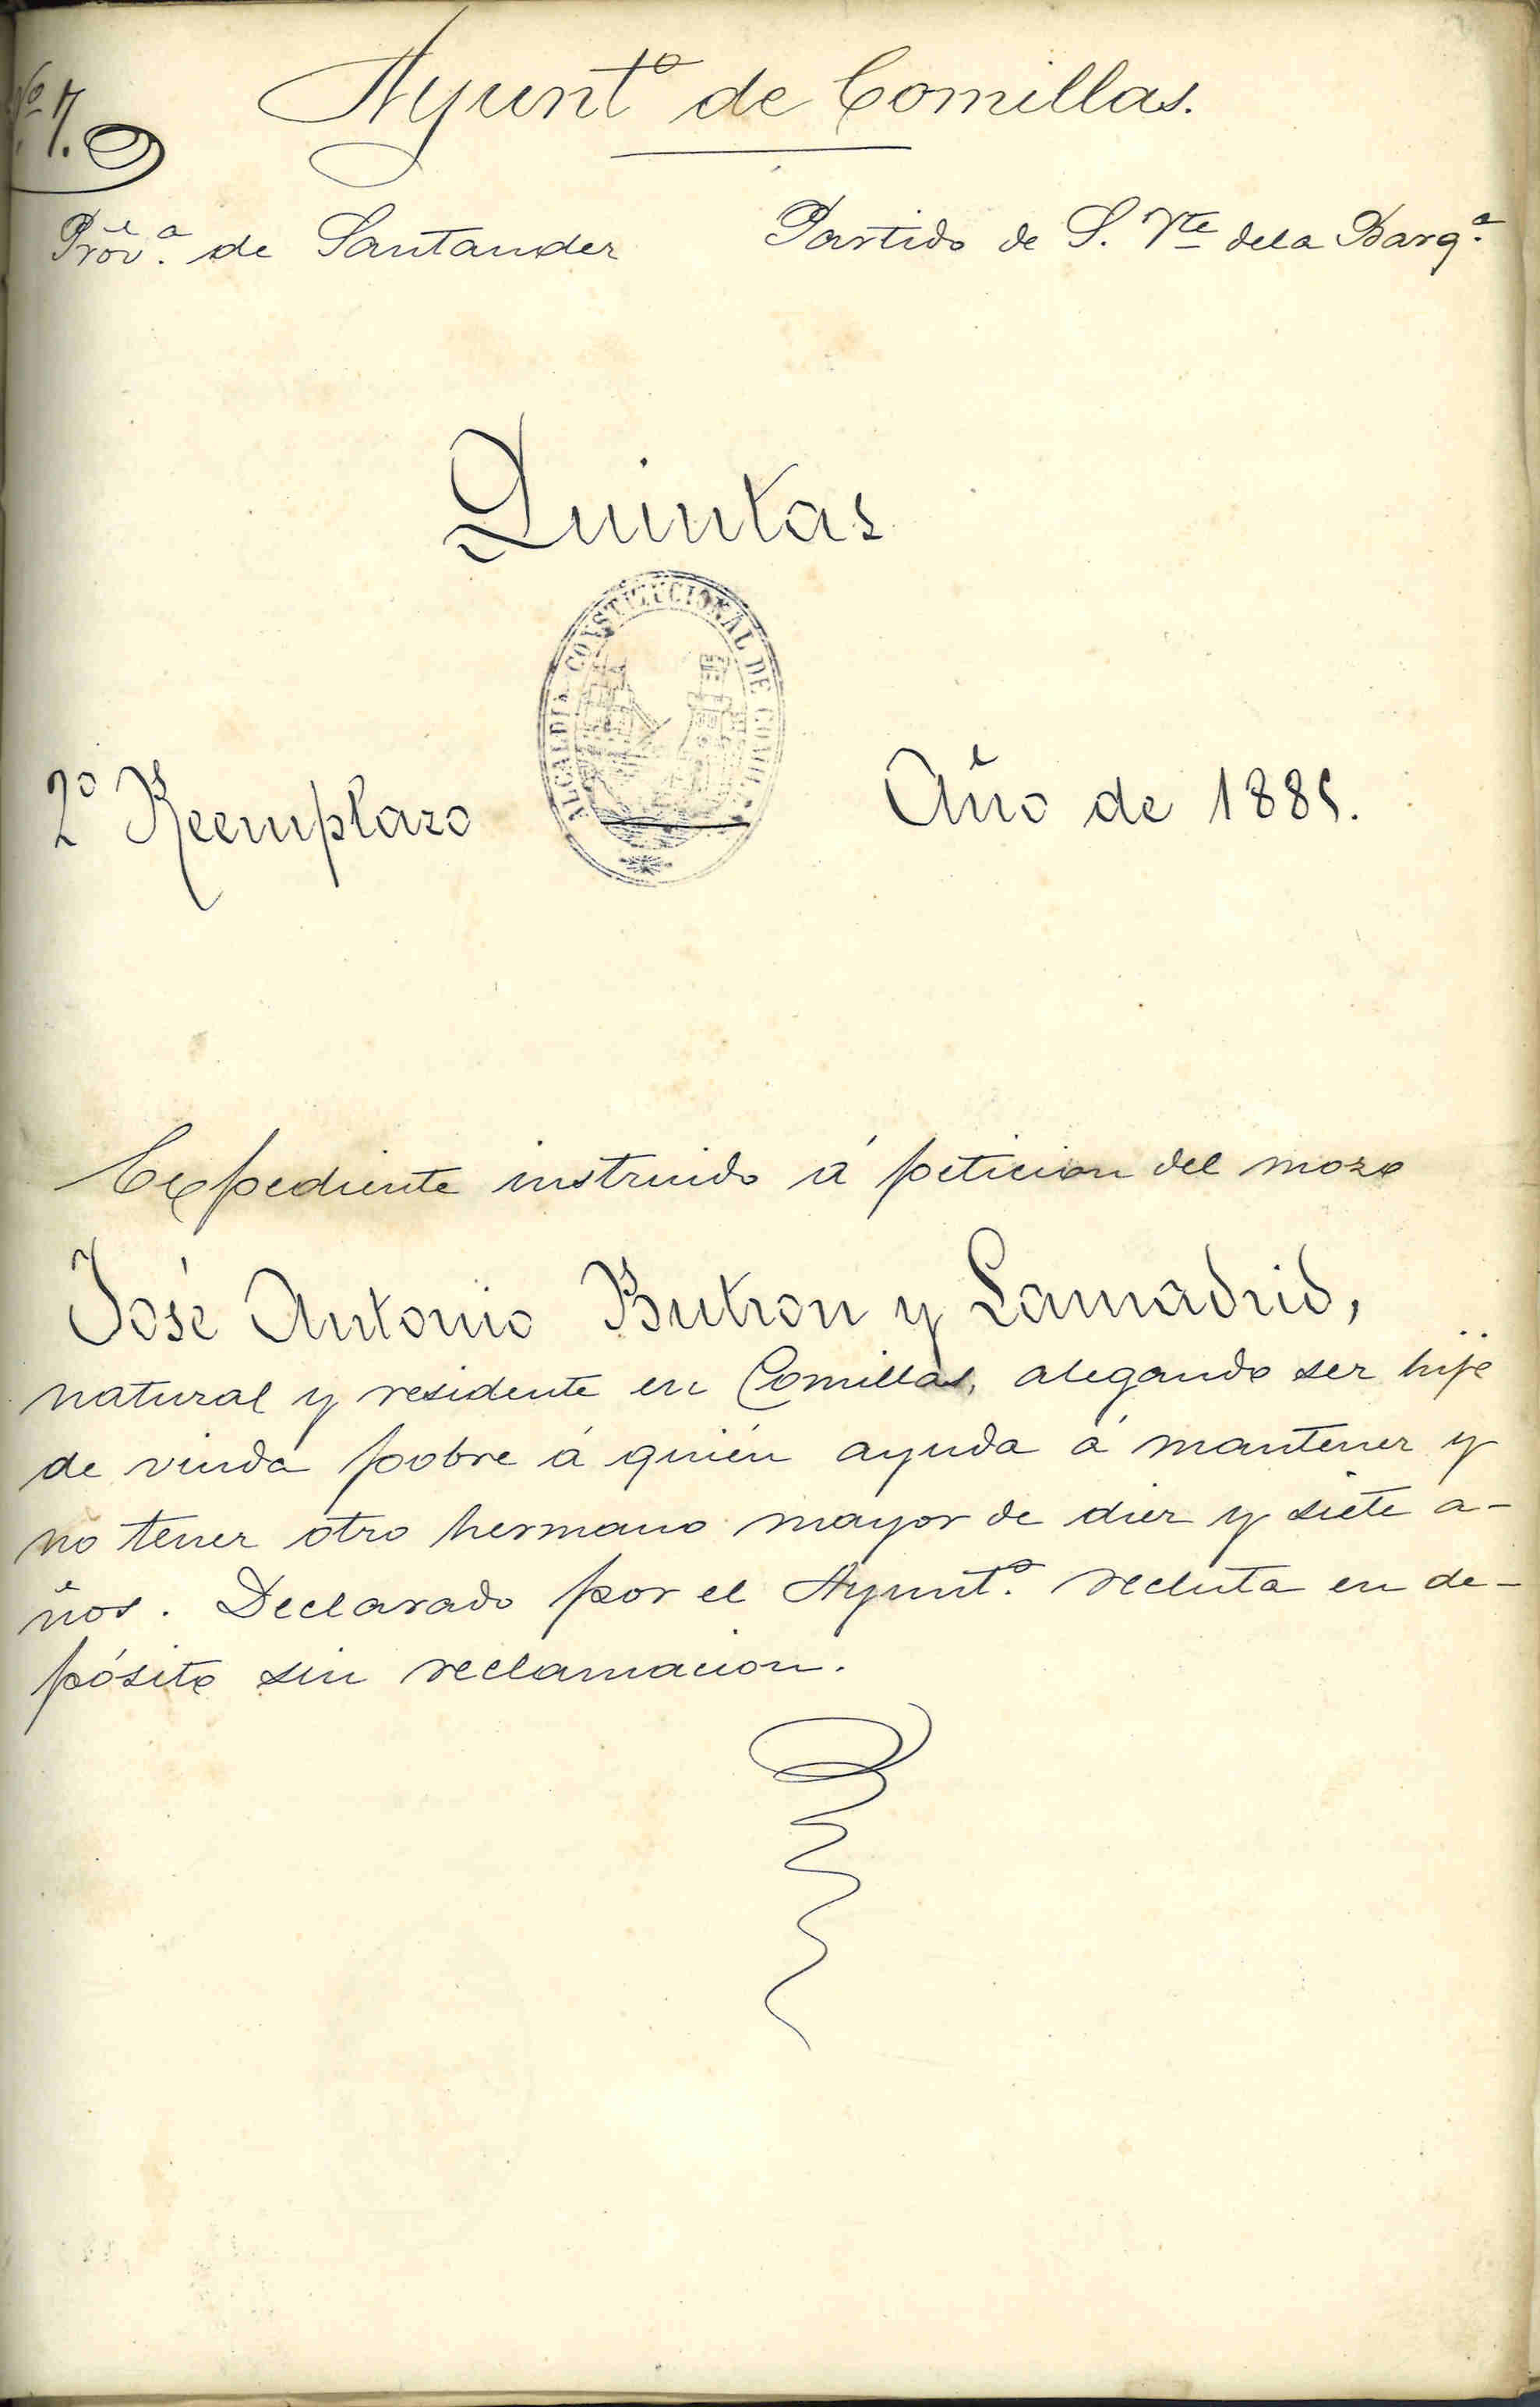 Nº 7.
Ayuntº de Comillas.
Provª. de Santander
Partido de S. Vte dela Barqª.
Quintas
ALCALDIA CONSTITUCIONAL DE COMILLAS
2º Reemplazo
Año de 1885.
Expediente instruido á peticion del mozo
José Antonio Butron y Lamadrid,
natural y residente en Comillas, alegando ser hijo
de viuda pobre á quién ayuda á mantener y
no tener otro hermano mayor de diez y siete a-
ños. Declarado por el Ayuntº. recluta en de-
pósito sin reclamacion.